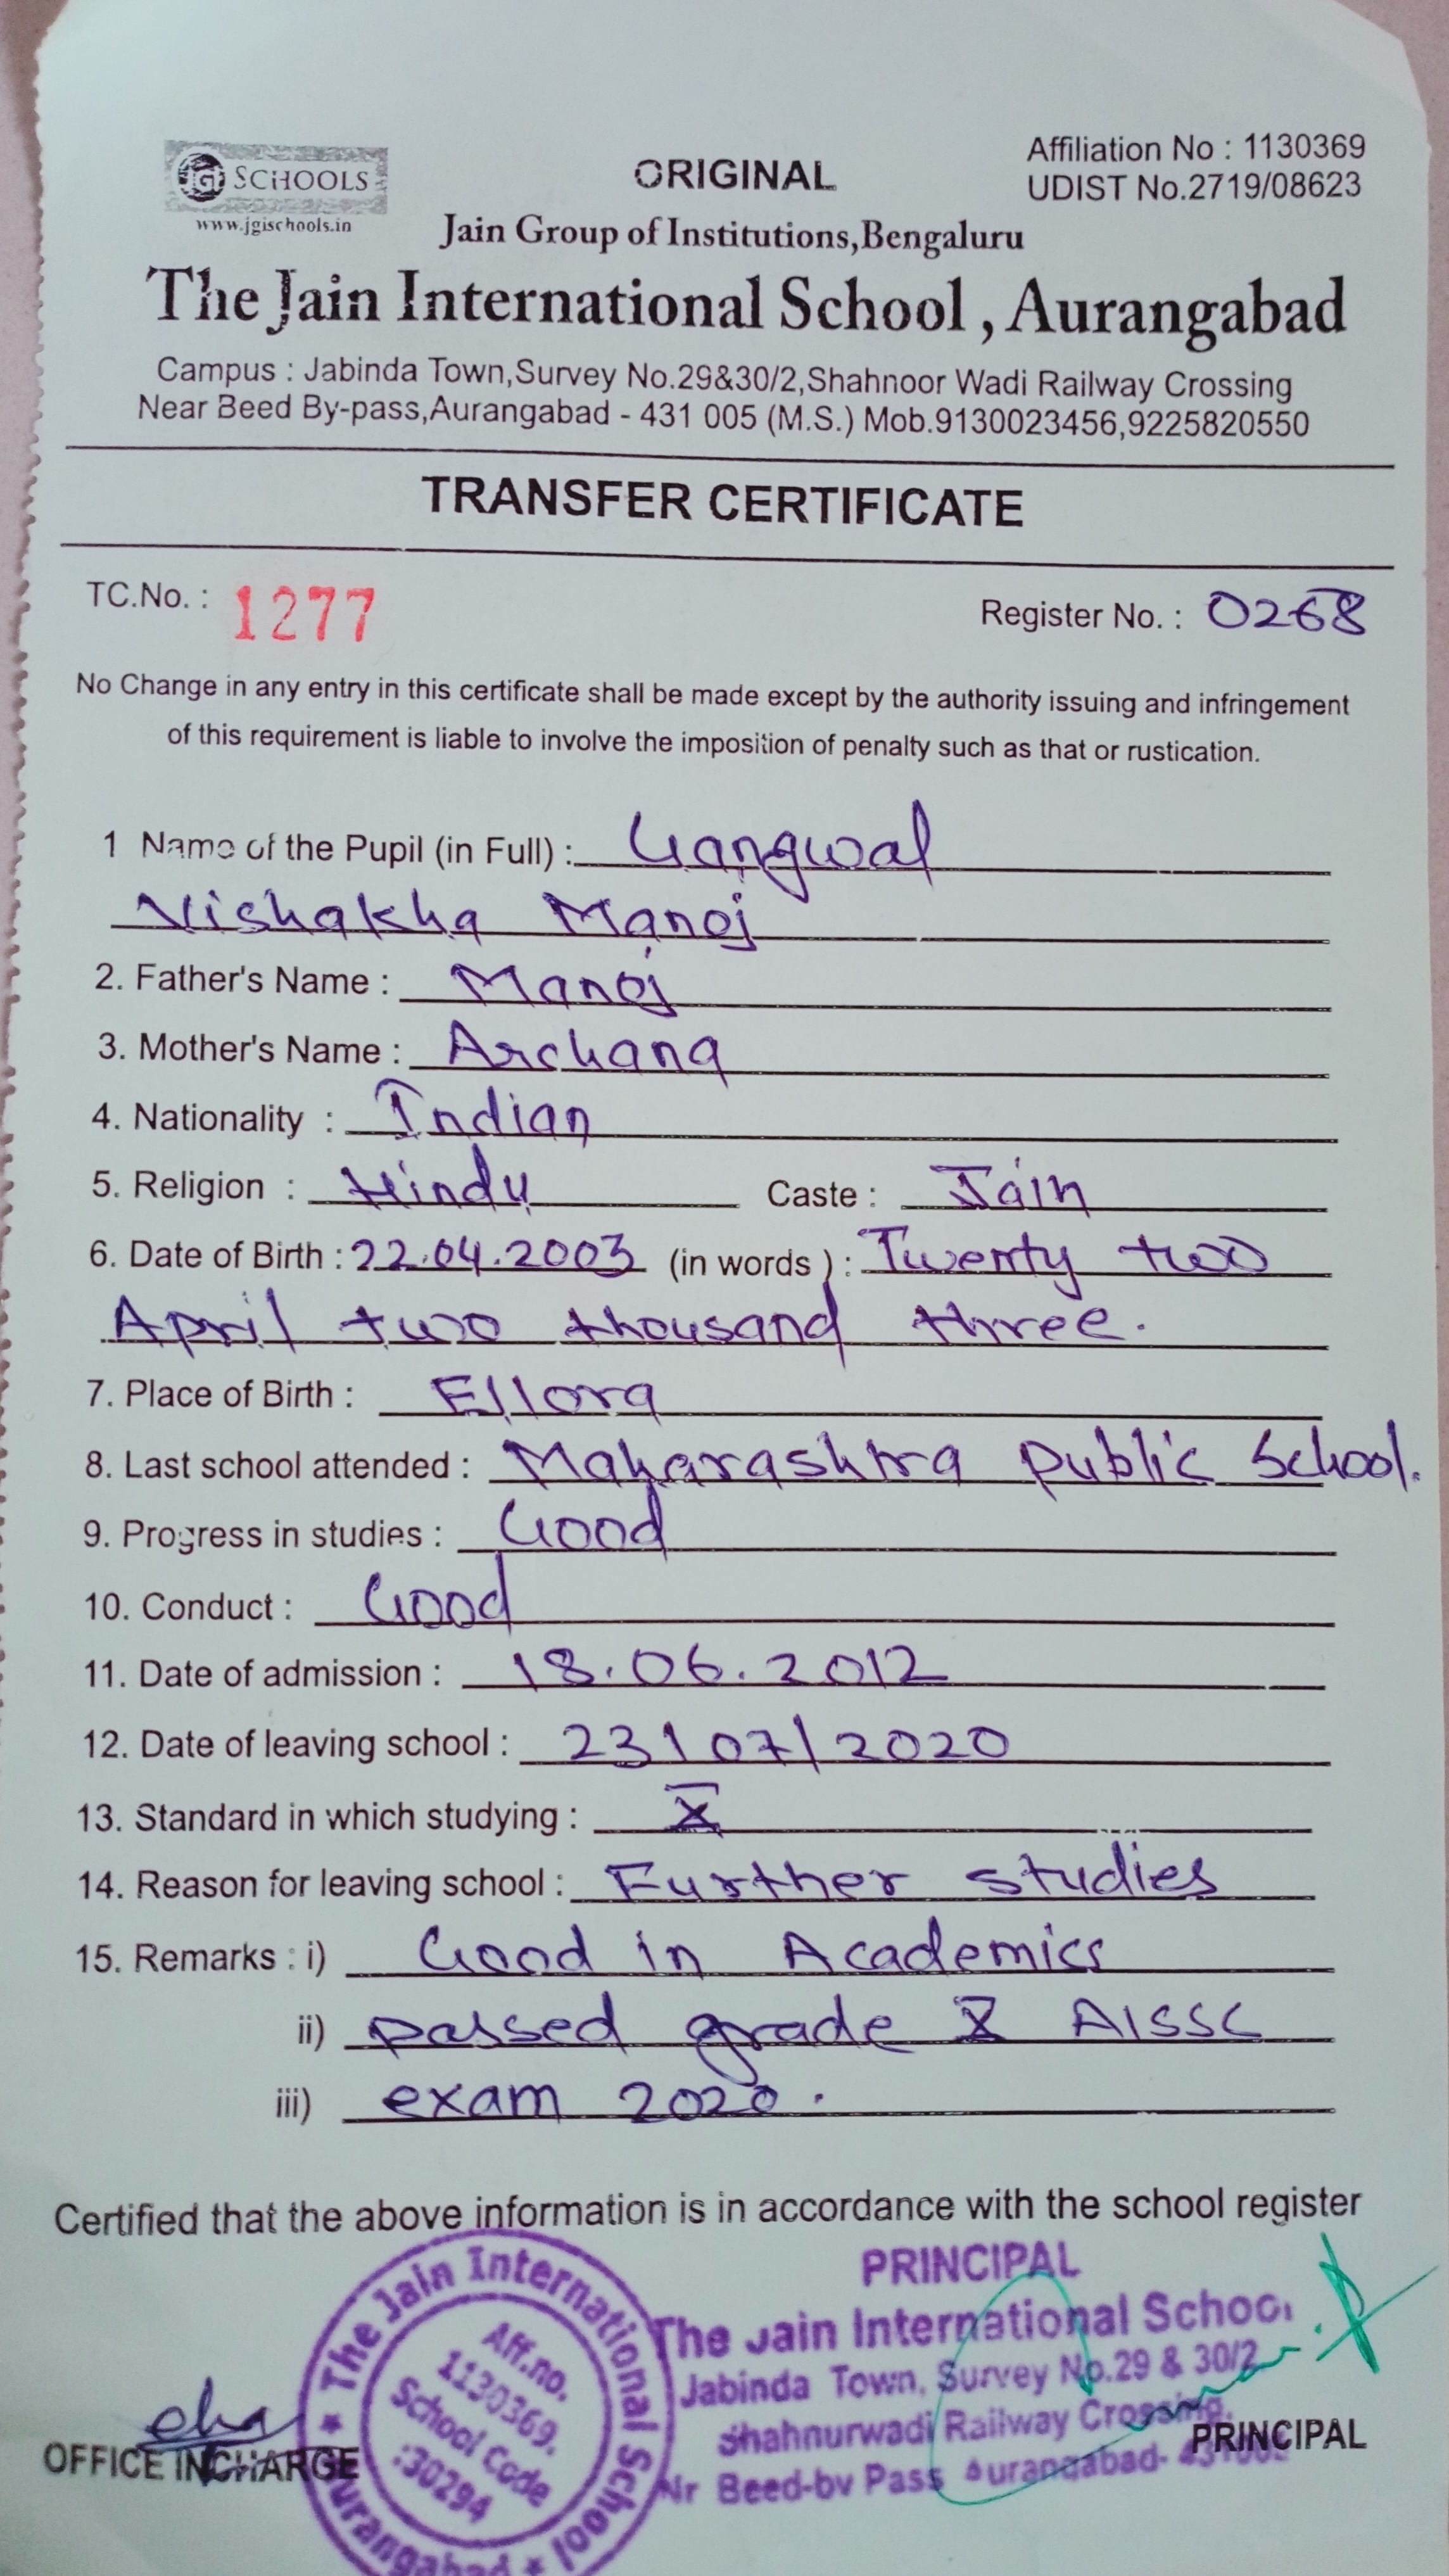 JGI SCHOOLS
www.jgischools.in
ORIGINAL
Affiliation No : 1130369
UDIST No.2719/08623
Jain Group of Institutions,Bengaluru
The Jain International School , Aurangabad
Campus : Jabinda Town,Survey No.29&30/2,Shahnoor Wadi Railway Crossing
Near Beed By-pass,Aurangabad - 431 005 (M.S.) Mob.9130023456,9225820550
TRANSFER CERTIFICATE
TC.No. : 1277 Register No. : 0268
No Change in any entry in this certificate shall be made except by the authority issuing and infringement
of this requirement is liable to involve the imposition of penalty such as that or rustication.
1 Name of the Pupil (in Full) : Gangwal
Vishakha Manoj
2. Father's Name : Manoj
3. Mother's Name : Archana
4. Nationality : Indian
5. Religion : Hindu Caste : Jain
6. Date of Birth : 22.04.2003 (in words ) : Twenty two
April two thousand three.
7. Place of Birth : Ellora
8. Last school attended : Maharashtra public School.
9. Progress in studies : Good
10. Conduct : Good
11. Date of admission : 18.06.2012
12. Date of leaving school : 23/07/2020
13. Standard in which studying : X
14. Reason for leaving school : Further studies
15. Remarks : i) Good in Academics
ii) passed grade X AISSC
iii) exam 2020.
Certified that the above information is in accordance with the school register
The Jain International School Aurangabad
Aff.no.
1130369.
School Code
:30294
PRINCIPAL
The Jain International School
Jabinda Town, Survey No.29 & 30/2
Shahnurwadi Railway Crossing,
Nr Beed-by Pass Aurangabad-
OFFICE INCHARGE
PRINCIPAL